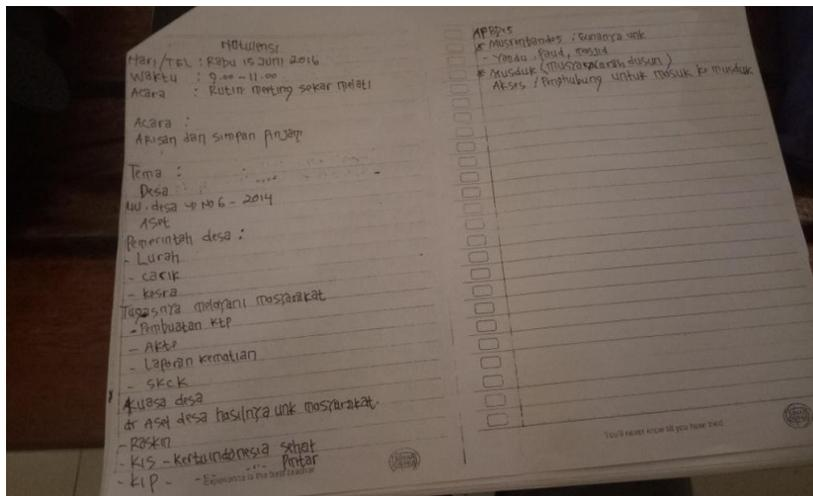 Notulensi
Hari/TGL : Rabu 15 Juni 2016
Waktu : 9.00 - 11.00
Acara : Rutin meeting sekar melati
Acara :
Arisan dan simpan Pinjam
Tema :
Desa
UU. desa No 6 - 2014
Aset
Pemerintah desa :
- Lurah
- carik
- kesra
Tugasnya melayani masyarakat
- Pembuatan KTP
- Akte
- Laporan kematian
- SKCK
Kuasa desa
dr Aset desa hasilnya unk masyarakat.
- Raskin
- KIS - Kartu indonesia sehat
- KIP - -"- Pintar
Experience is the best teacher
APBDES
* Musrenbangdes : Dananya unk
- Yandu, Paud, masjid
* Musduk (musyawarah dusun)
Akses / Penghubung untuk masuk ke musduk
You'll never know till you have tried